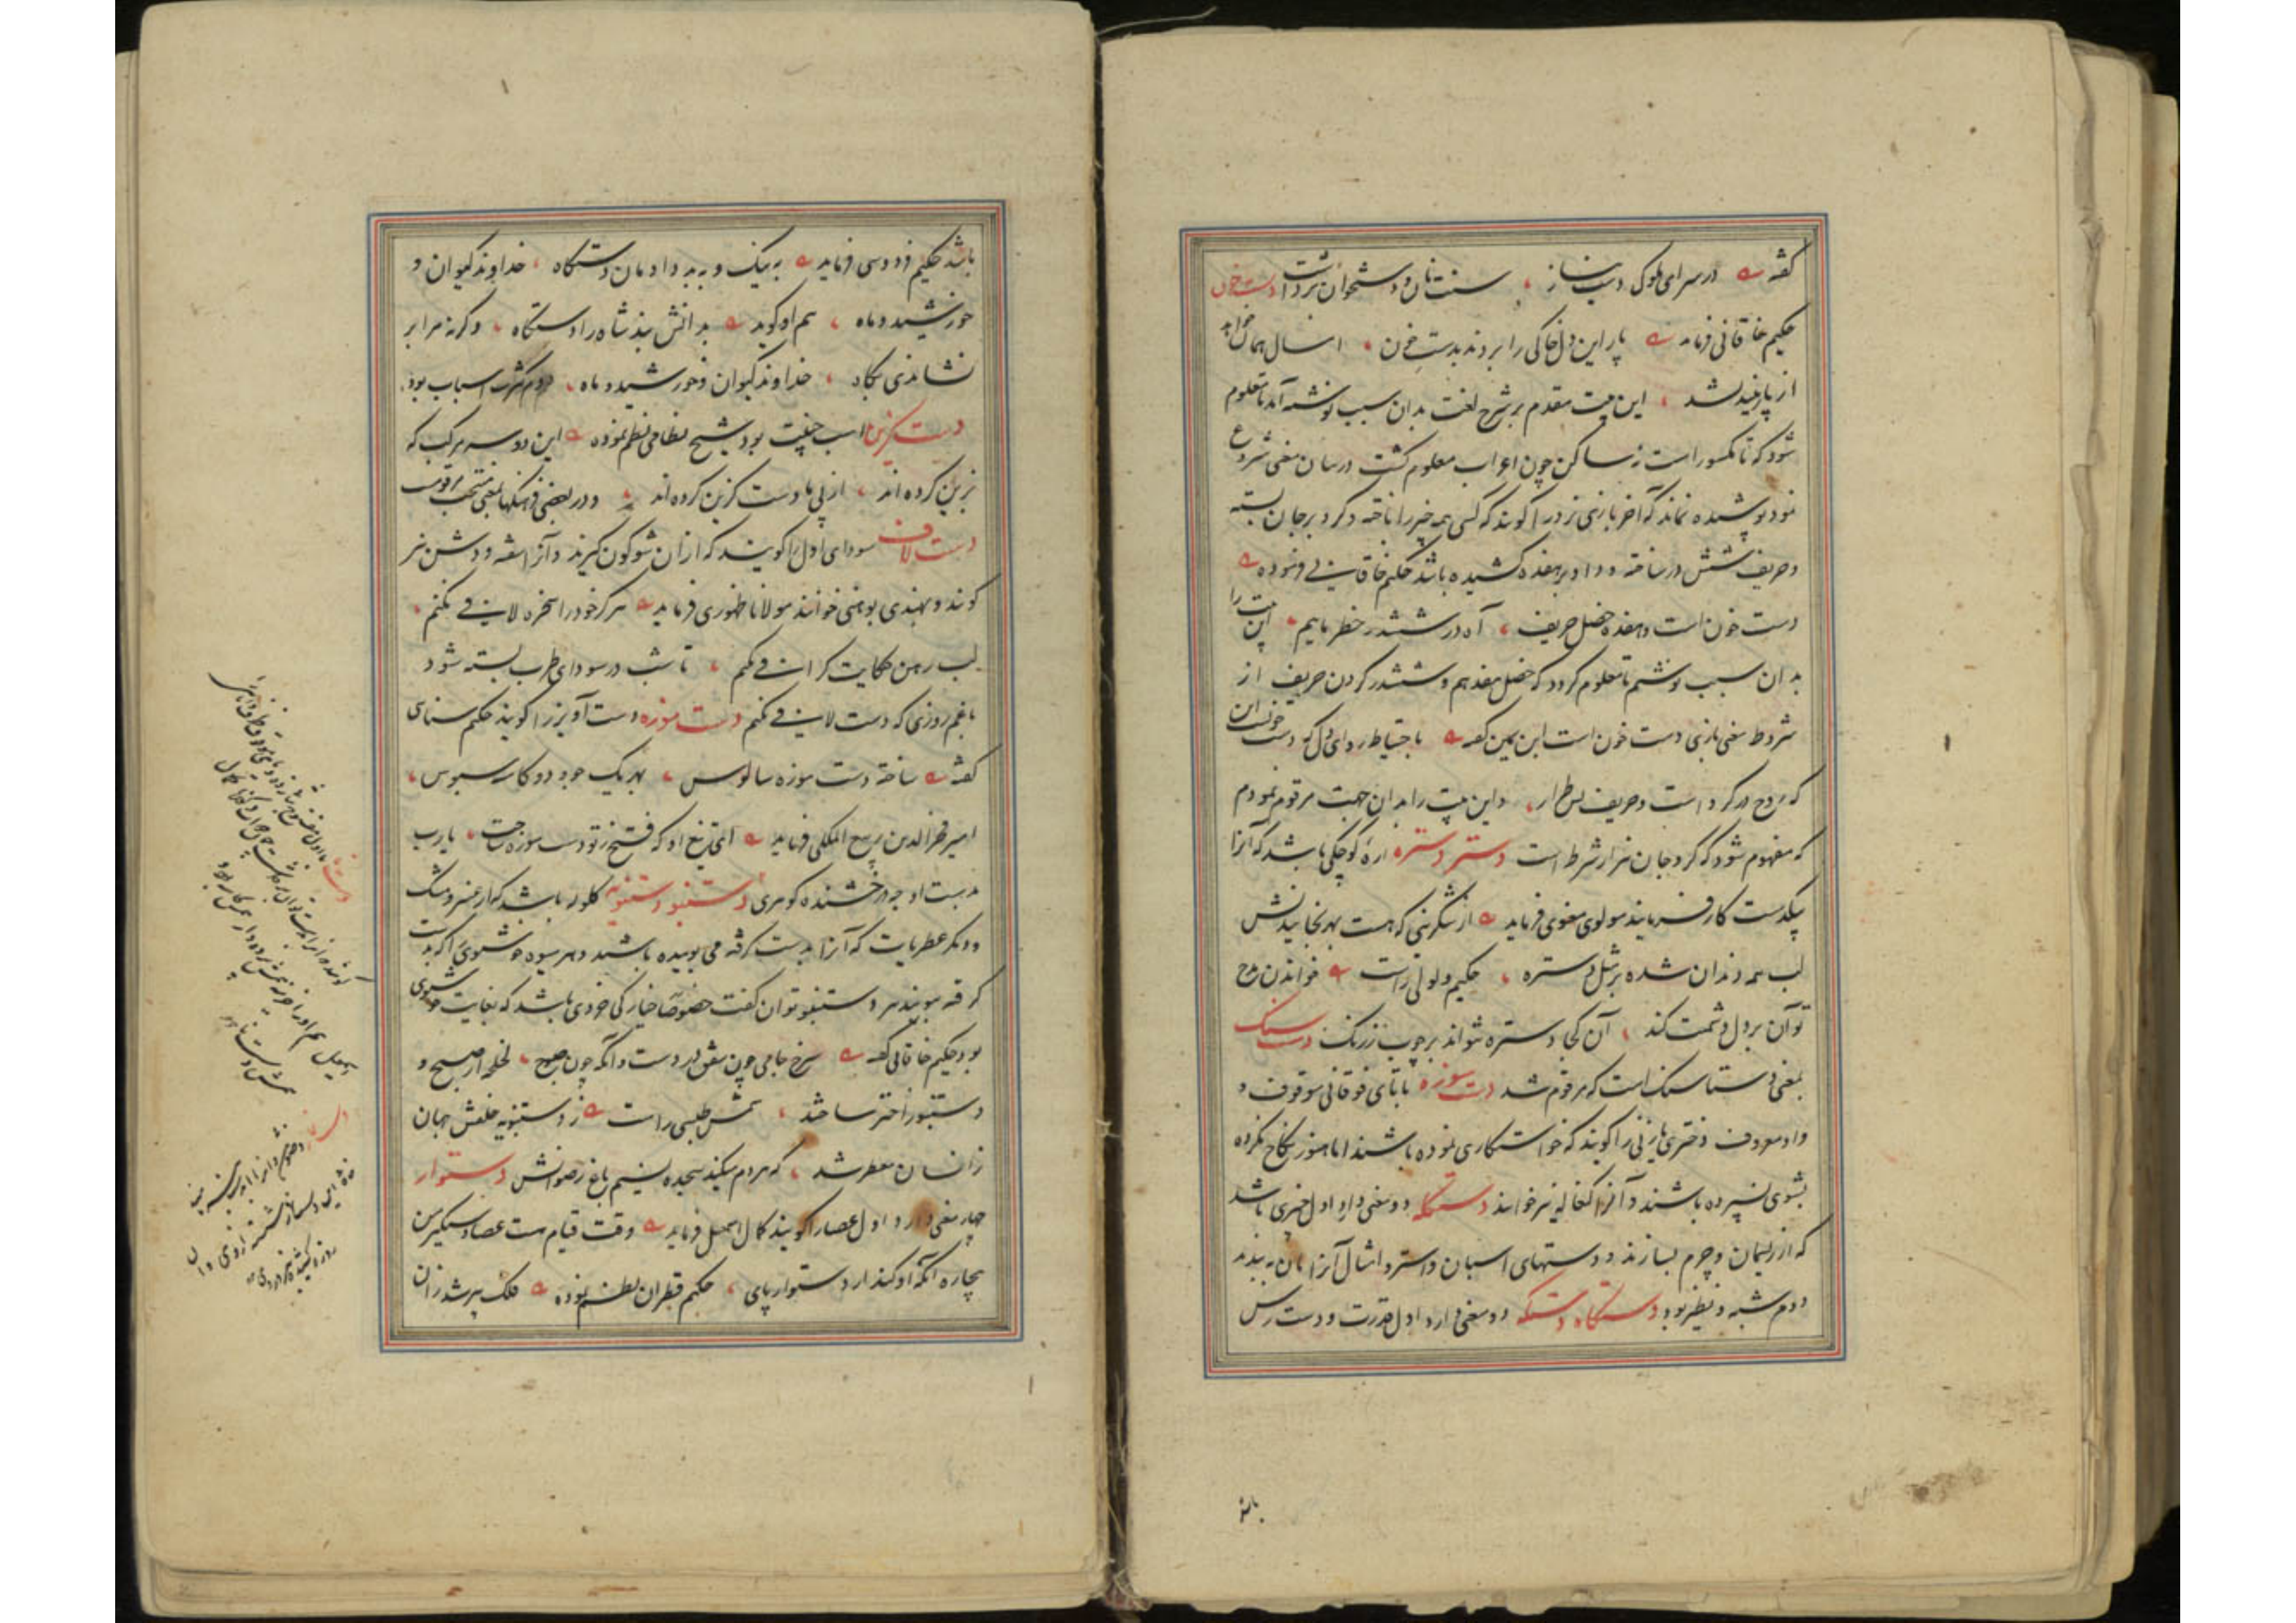 گفته در سرای ملوک دست نیاز ، سنت نان و دستخوان برداشت دست خون
حکیم خاقانی فرماید پار این دل خاکی را بردند بدست خون ، امسال همان خواهد
از پار نیندیشد ، این بیت مقدم بر شرح لغت بدان سبب نوشته آمد تا معلوم
شود که تا مکسور است نه ساکن چون اعراب معلوم گشت در بیان معنی شروع
نمود پوشیده نماند که آخر بازی نرد را گویند که کسی همه چیز را باخته و گرو بر جان بسته
و حریف ششدر ساخته و داو بر هفده کشیده باشد حکیم خاقانی فرموده
دست خون است و هفده خصل حریف ، آه در ششدر خطر ماییم ، این بیت را
بدان سبب نوشتم تا معلوم گردد که خصل هفدهم و ششدر کردن حریف از
شروط معنی بازی دست خون است ابن یمین گفته با احتیاط رو ای دل که دست خونست این
که روح در گرو است و حریف بس طرار ، و این بیت را بدان جهت مرقوم نمودم
که مفهوم شود که گرو جان نیز از شرط است دستر دستره اره کوچکی باشد که آنرا
بیکدست کار فرمایند مولوی معنوی فرماید از شکرینی که هست بهر بخاییدنش
لب همه دندان شده بر مثل دستره ، حکیم لولوئی راست خواندن مدح
تو آن بر دل دشمنت کند ، آن کجا دستره نتواند بر چوب زرنگ دست سنگ
بمعنی دستاسنگ است که مرقوم شد دست سوزه با تای فوقانی موقوف و
واو معروف دختری یا زنی را گویند که خواستگاری نموده باشند اما هنوز نکاح نکرده
بشوی نسپرده باشند و آنرا کغاله نیز خوانند دستکله دو معنی دارد اول چیزی باشد
که از ریسمان و چرم بسازند و دستهای اسبان و استر و امثال آنرا بدان ببندند
دوم شبه و نظیر بود دستگاه دستگه دو معنی دارد اول قدرت و دست رس
باشد
باشد حکیم فردوسی فرماید به نیک و به بد دادمان دستگاه ، خداوند کیوان و
خورشید و ماه ، هم او گوید بدانش بند شاه را دستگاه ، وگرنه مرا بر
نشاندی بگاه ، خداوند کیوان و خورشید و ماه ، دوم کثرت اسباب بود
دست گزین اسب جنیبت بود شیخ نظامی نظم نموده این دو سه مرکب که
بزین کرده اند ، از پی ما دست گزین کرده اند ، و در بعضی فرهنگها بمعنی منتخب مرقومست
دست لاف سودای اول را گویند که از آن شوگون گیرند و آنرا سفته و دشن نیز
گویند و بهندی بوهنی خوانند مولانا ظهوری فرماید هرگز خود را سخره لافی نکنم ،
لب رهن حکایت گزافی نکنم ، تا شب در سودای طرب بسته شود
با غم روزی که دست لافی نکنم دست موزه دست آویز را گویند حکیم سنائی
گفته ساخته دست موزه سالوس ، بهر یک جو و دو کاسه سبوس ،
امیر فخر الدین ربیع الملکی فرماید ای تیغ او که فتح ز تو دست موزه جست ، یارب
بدست او چه درخشنده گوهری دستنبو دستنبویه گلوله باشد که از عنبر و مشک
و دیگر عطریات که آنرا بدست گرفته می بوییده باشند و هر میوه خوشبوی را که بدست
گرفته ببویند هر دستنبو توان گفت خصوصا خیارکی خردی باشد که بغایت خوشبوی
بود حکیم خاقانی گفته سرخ جامی چون شفق در دست و آنگه چون صبوح ، لخلخه از صبح و
دستنبو از اختر ساختند ، شمس طبسی راست ز دستنبویه خلقش جهان
زانسان معطر شد ، که مردم میکند سجده نسیم باغ رضوانش دستوار
چهار معنی دارد اول عصا را گویند کمال اسمعیل فرماید وقت قیام هست عصا دستگیر من
بیچاره آنکه او کند از دستوار پای ، حکیم قطران نظم نموده فلک پیر شد زان